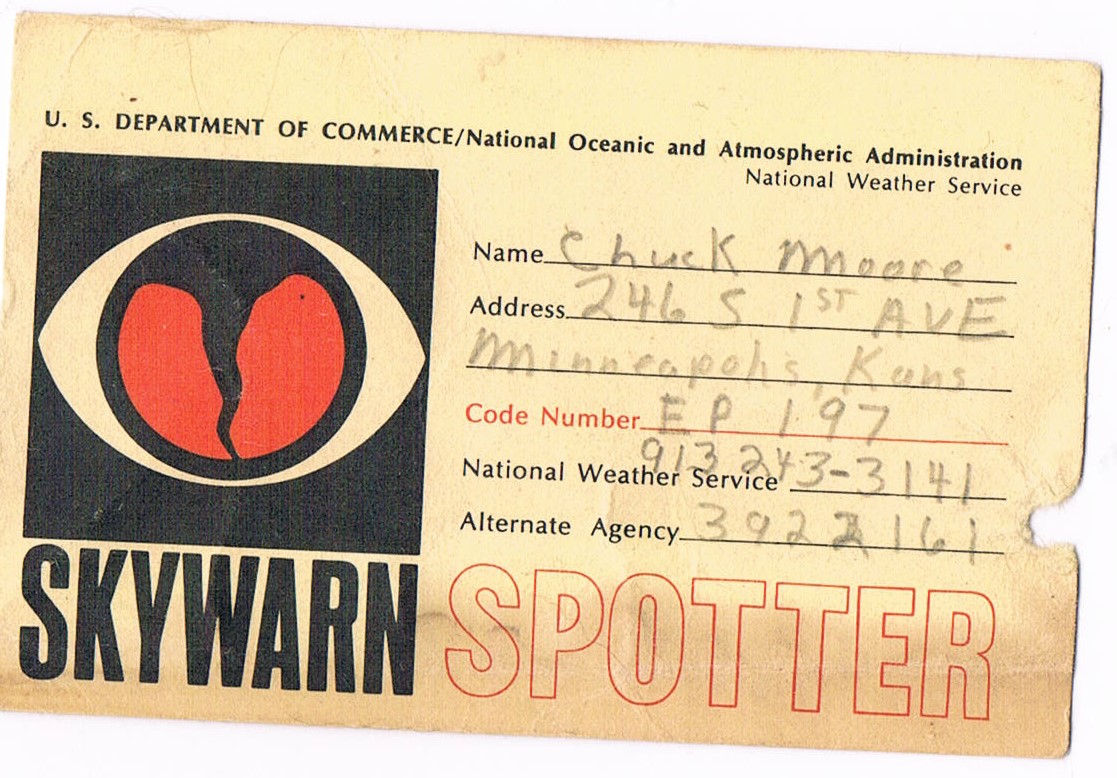 U. S. DEPARTMENT OF COMMERCE/National Oceanic and Atmospheric Administration
National Weather Service
Name Chuck Moore
Address 246 S 1ST AVE
Minneapolis, Kans
Code Number EP 197
National Weather Service 913 243-3141
Alternate Agency 392 2161
SKYWARN SPOTTER